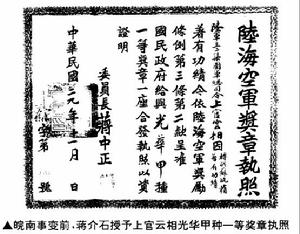 陸海空軍獎章執照
陸軍第三戰區副司令上官云相因
著有功績今依陸海空軍獎勵
條例第三條第二款呈准
國民政府給與光華甲種
一等獎章一座合發執照以資
證明
委員長蔣中正
中華民國二九年十一月 日
號
▲皖南事变前，蒋介石授予上官云相光华甲种一等奖章执照